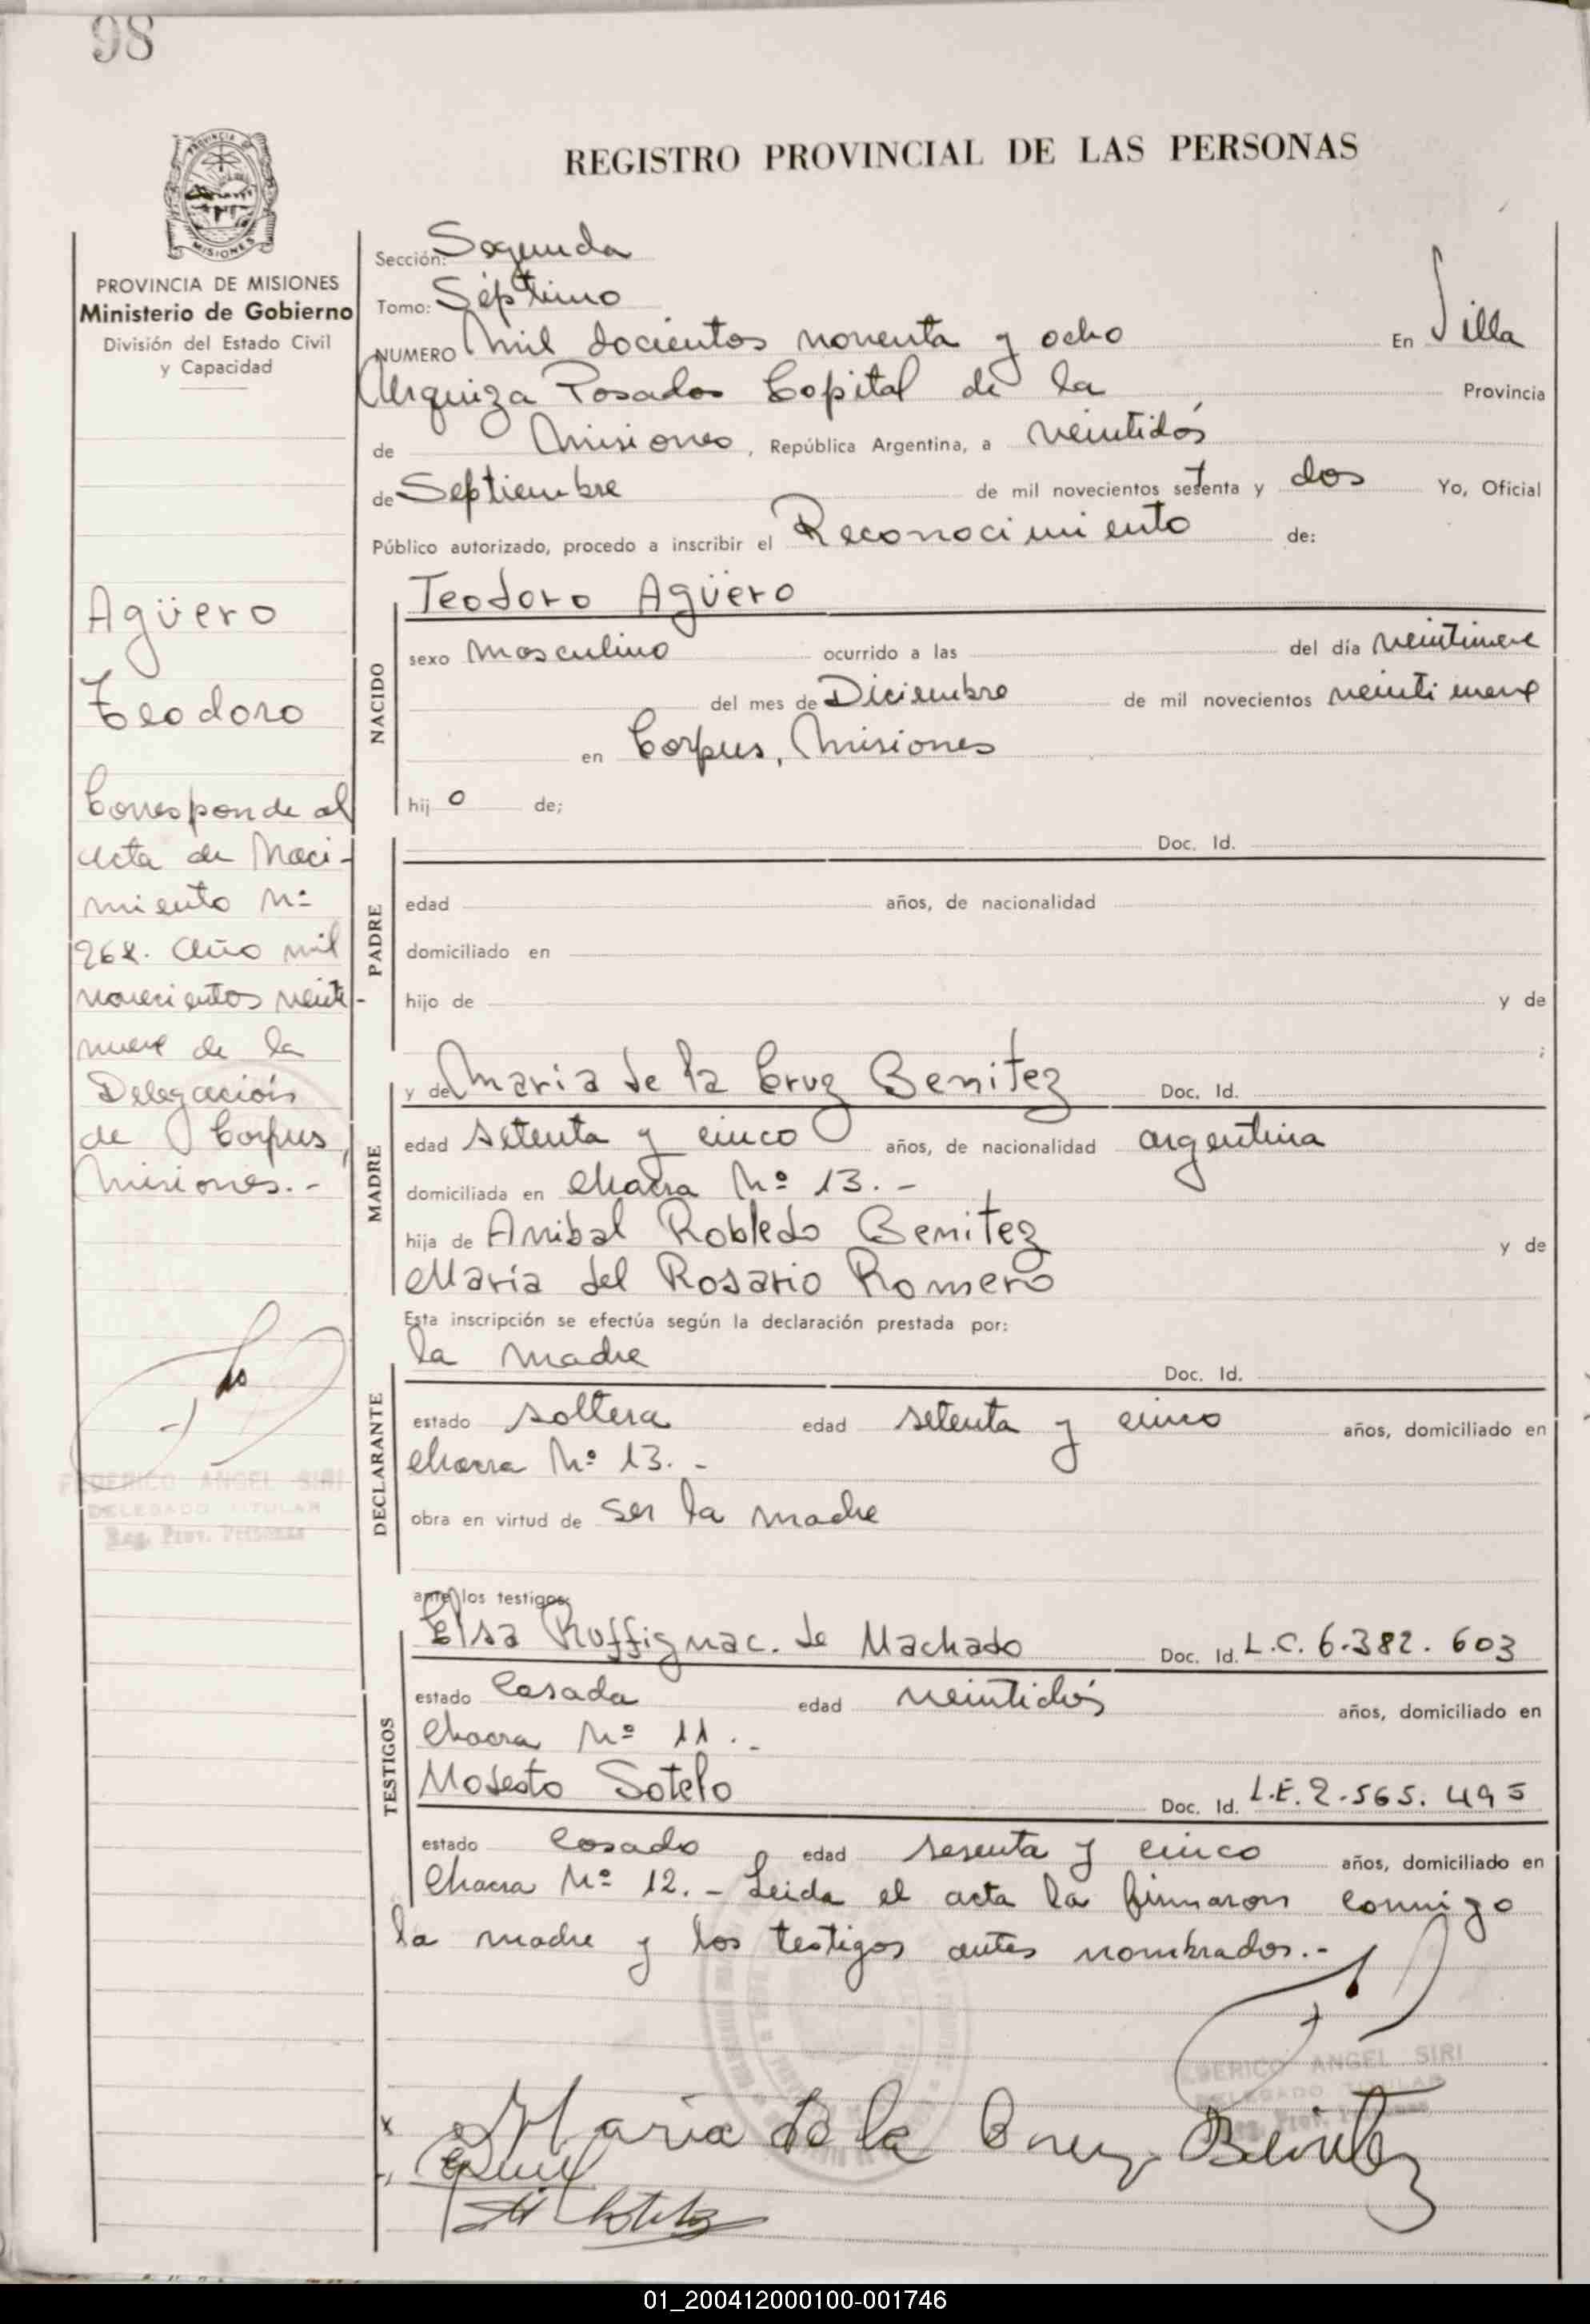 98
REGISTRO PROVINCIAL DE LAS PERSONAS
PROVINCIA
MISIONES
PROVINCIA DE MISIONES
Ministerio de Gobierno
División del Estado Civil
y Capacidad
Agüero
Teodoro
Corresponde al
acta de Naci-
miento Nº
268. Año mil
novecientos veinti-
nueve de la
Delegación
de Corpus,
Misiones.-
FEDERICO ANGEL SIRI
DELEGADO TITULAR
Reg. Prov. Personas
Sección: Segunda
Tomo: Séptimo
NUMERO Mil docientos noventa y ocho En Villa
Urquiza Posadas Capital de la Provincia
de Misiones, República Argentina, a veintidós
de Septiembre de mil novecientos setenta y dos Yo, Oficial
Público autorizado, procedo a inscribir el Reconocimiento de:
NACIDO
Teodoro Agüero
sexo masculino ocurrido a las del día veintinueve
del mes de Diciembre de mil novecientos veintinueve
en Corpus, Misiones
hij o de;
PADRE
Doc. Id.
edad años, de nacionalidad
domiciliado en
hijo de y de
;
MADRE
y de Maria de la Cruz Benitez Doc. Id.
edad setenta y cinco años, de nacionalidad argentina
domiciliada en Chacra Nº 13.-
hija de Anibal Robledo Benitez y de
María del Rosario Romero
Esta inscripción se efectúa según la declaración prestada por:
DECLARANTE
la madre Doc. Id.
estado soltera edad setenta y cinco años, domiciliado en
Chacra Nº 13.-
obra en virtud de ser la madre
ante los testigos:
TESTIGOS
Elsa Ruffignac. de Machado Doc. Id. L.C. 6.382.603
estado Casada edad veintidós años, domiciliado en
Chacra Nº 11.-
Modesto Sotelo Doc. Id. L.E. 2.565.495
estado Casado edad sesenta y cinco años, domiciliado en
Chacra Nº 12.- Leida el acta la firmaron conmigo
la madre y los testigos antes nombrados.-
FEDERICO ANGEL SIRI
DELEGADO TITULAR
Reg. Prov. Personas
Maria De la Cruz Benitez
01_200412000100-001746